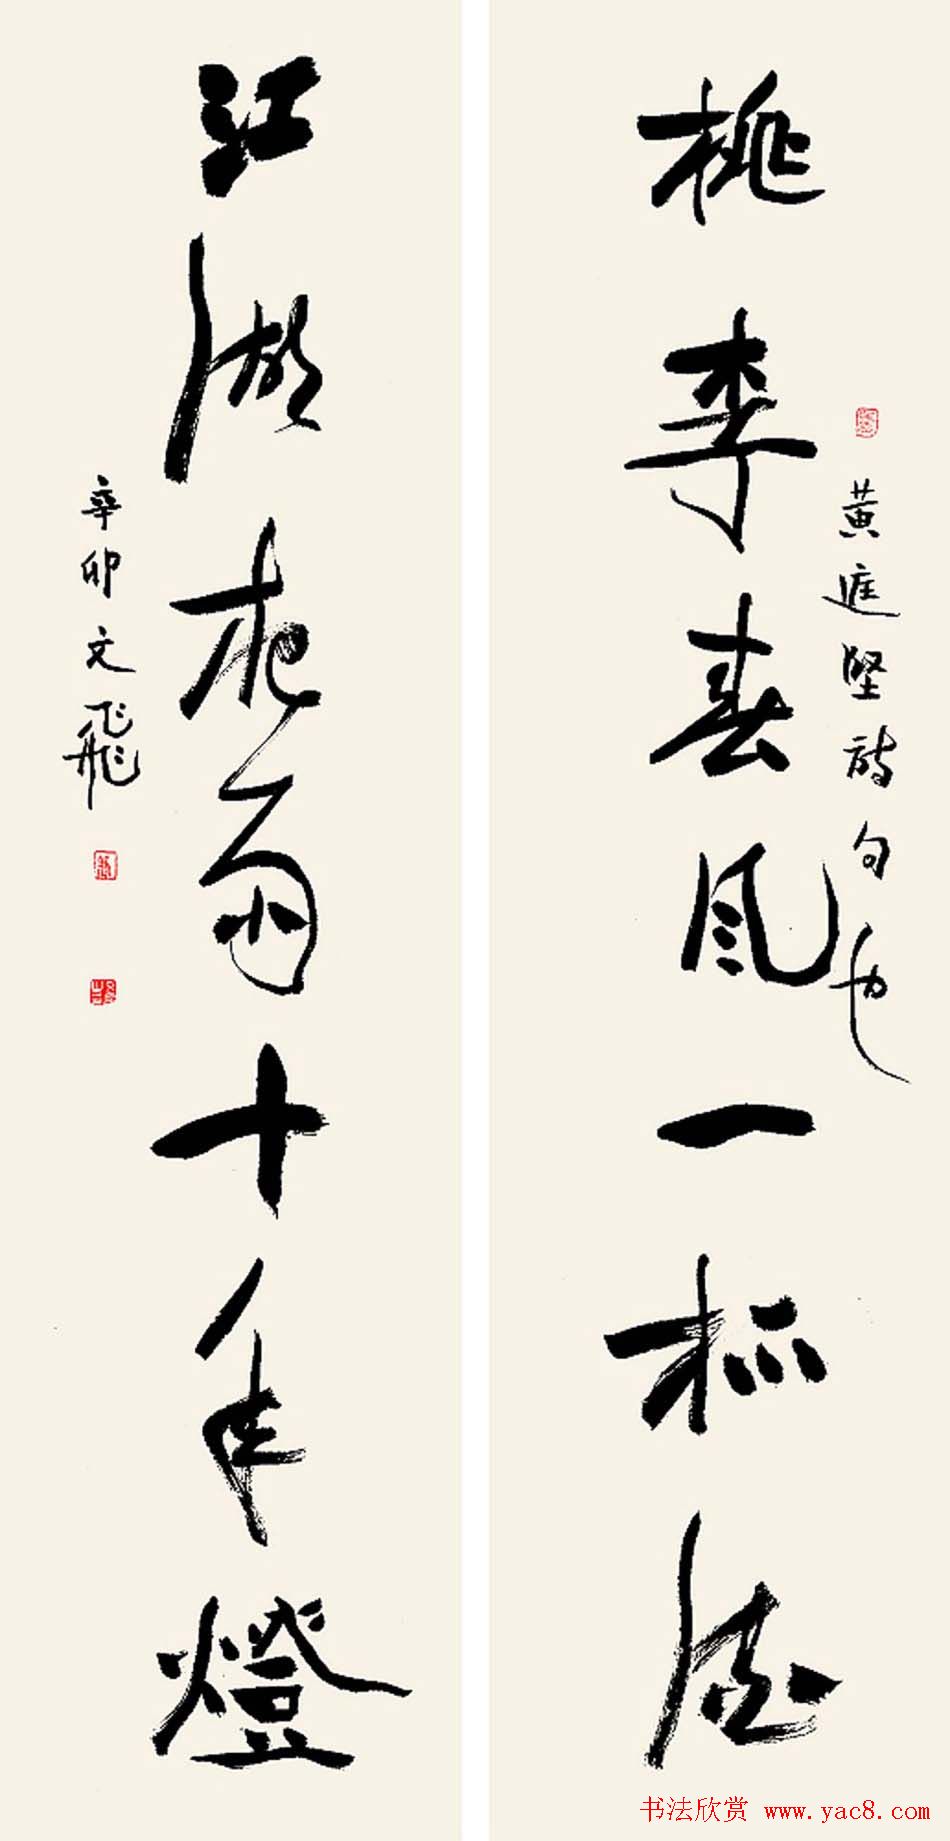 桃李春风一杯酒
黄庭坚诗句也
江湖夜雨十年燈
辛卯文飛
书法欣赏 www.yac8.com